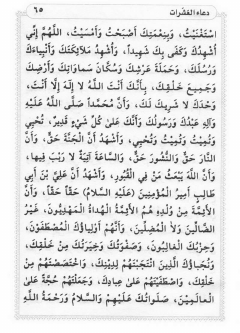 دعاء العشرات ٦٥
اسْتَغْنَيْتُ، وَبِنِعْمَتِكَ أَصْبَحْتُ وَأَمْسَيْتُ، اللَّهُمَّ إِنِّي
أُشْهِدُكَ وَكَفَى بِكَ شَهِيداً، وَأُشْهِدُ مَلَائِكَتَكَ وَأَنْبِيَاءَكَ
وَرُسُلَكَ، وَحَمَلَةَ عَرْشِكَ وَسُكَّانَ سَمَاوَاتِكَ وَأَرْضِكَ
وَجَمِيعَ خَلْقِكَ، بِأَنَّكَ أَنْتَ اللَّهُ لَا إِلَهَ إِلَّا أَنْتَ،
وَحْدَكَ لَا شَرِيكَ لَكَ، وَأَنَّ مُحَمَّداً صَلَّى اللَّهُ عَلَيْهِ
وَآلِهِ عَبْدُكَ وَرَسُولُكَ وَأَنَّكَ عَلَى كُلِّ شَيْءٍ قَدِيرٌ، تُحْيِي
وَتُمِيتُ وَتُمِيتُ وَتُحْيِي، وَأَشْهَدُ أَنَّ الْجَنَّةَ حَقٌّ، وَأَنَّ
النَّارَ حَقٌّ وَالنُّشُورَ حَقٌّ، وَالسَّاعَةَ آتِيَةٌ لَا رَيْبَ فِيهَا،
وَأَنَّ اللَّهَ يَبْعَثُ مَنْ فِي الْقُبُورِ، وَأَشْهَدُ أَنَّ عَلِيَّ بْنَ أَبِي
طَالِبٍ أَمِيرُ الْمُؤْمِنِينَ (عَلَيْهِ السَّلَامُ) حَقّاً حَقّاً، وَأَنَّ
الْأَئِمَّةَ مِنْ وُلْدِهِ هُمُ الْأَئِمَّةُ الْهُدَاةُ الْمَهْدِيُّونَ، غَيْرُ
الضَّالِّينَ وَلَا الْمُضِلِّينَ، وَأَنَّهُمْ أَوْلِيَاؤُكَ الْمُصْطَفَوْنَ،
وَحِزْبُكَ الْغَالِبُونَ، وَصَفْوَتُكَ وَخِيَرَتُكَ مِنْ خَلْقِكَ،
وَنُجَبَاؤُكَ الَّذِينَ انْتَجَبْتَهُمْ لِدِينِكَ، وَاخْتَصَصْتَهُمْ مِنْ
خَلْقِكَ، وَاصْطَفَيْتَهُمْ عَلَى عِبَادِكَ، وَجَعَلْتَهُمْ حُجَّةً عَلَى
الْعَالَمِينَ، صَلَوَاتُكَ عَلَيْهِمْ وَالسَّلَامُ وَرَحْمَةُ اللَّهِ